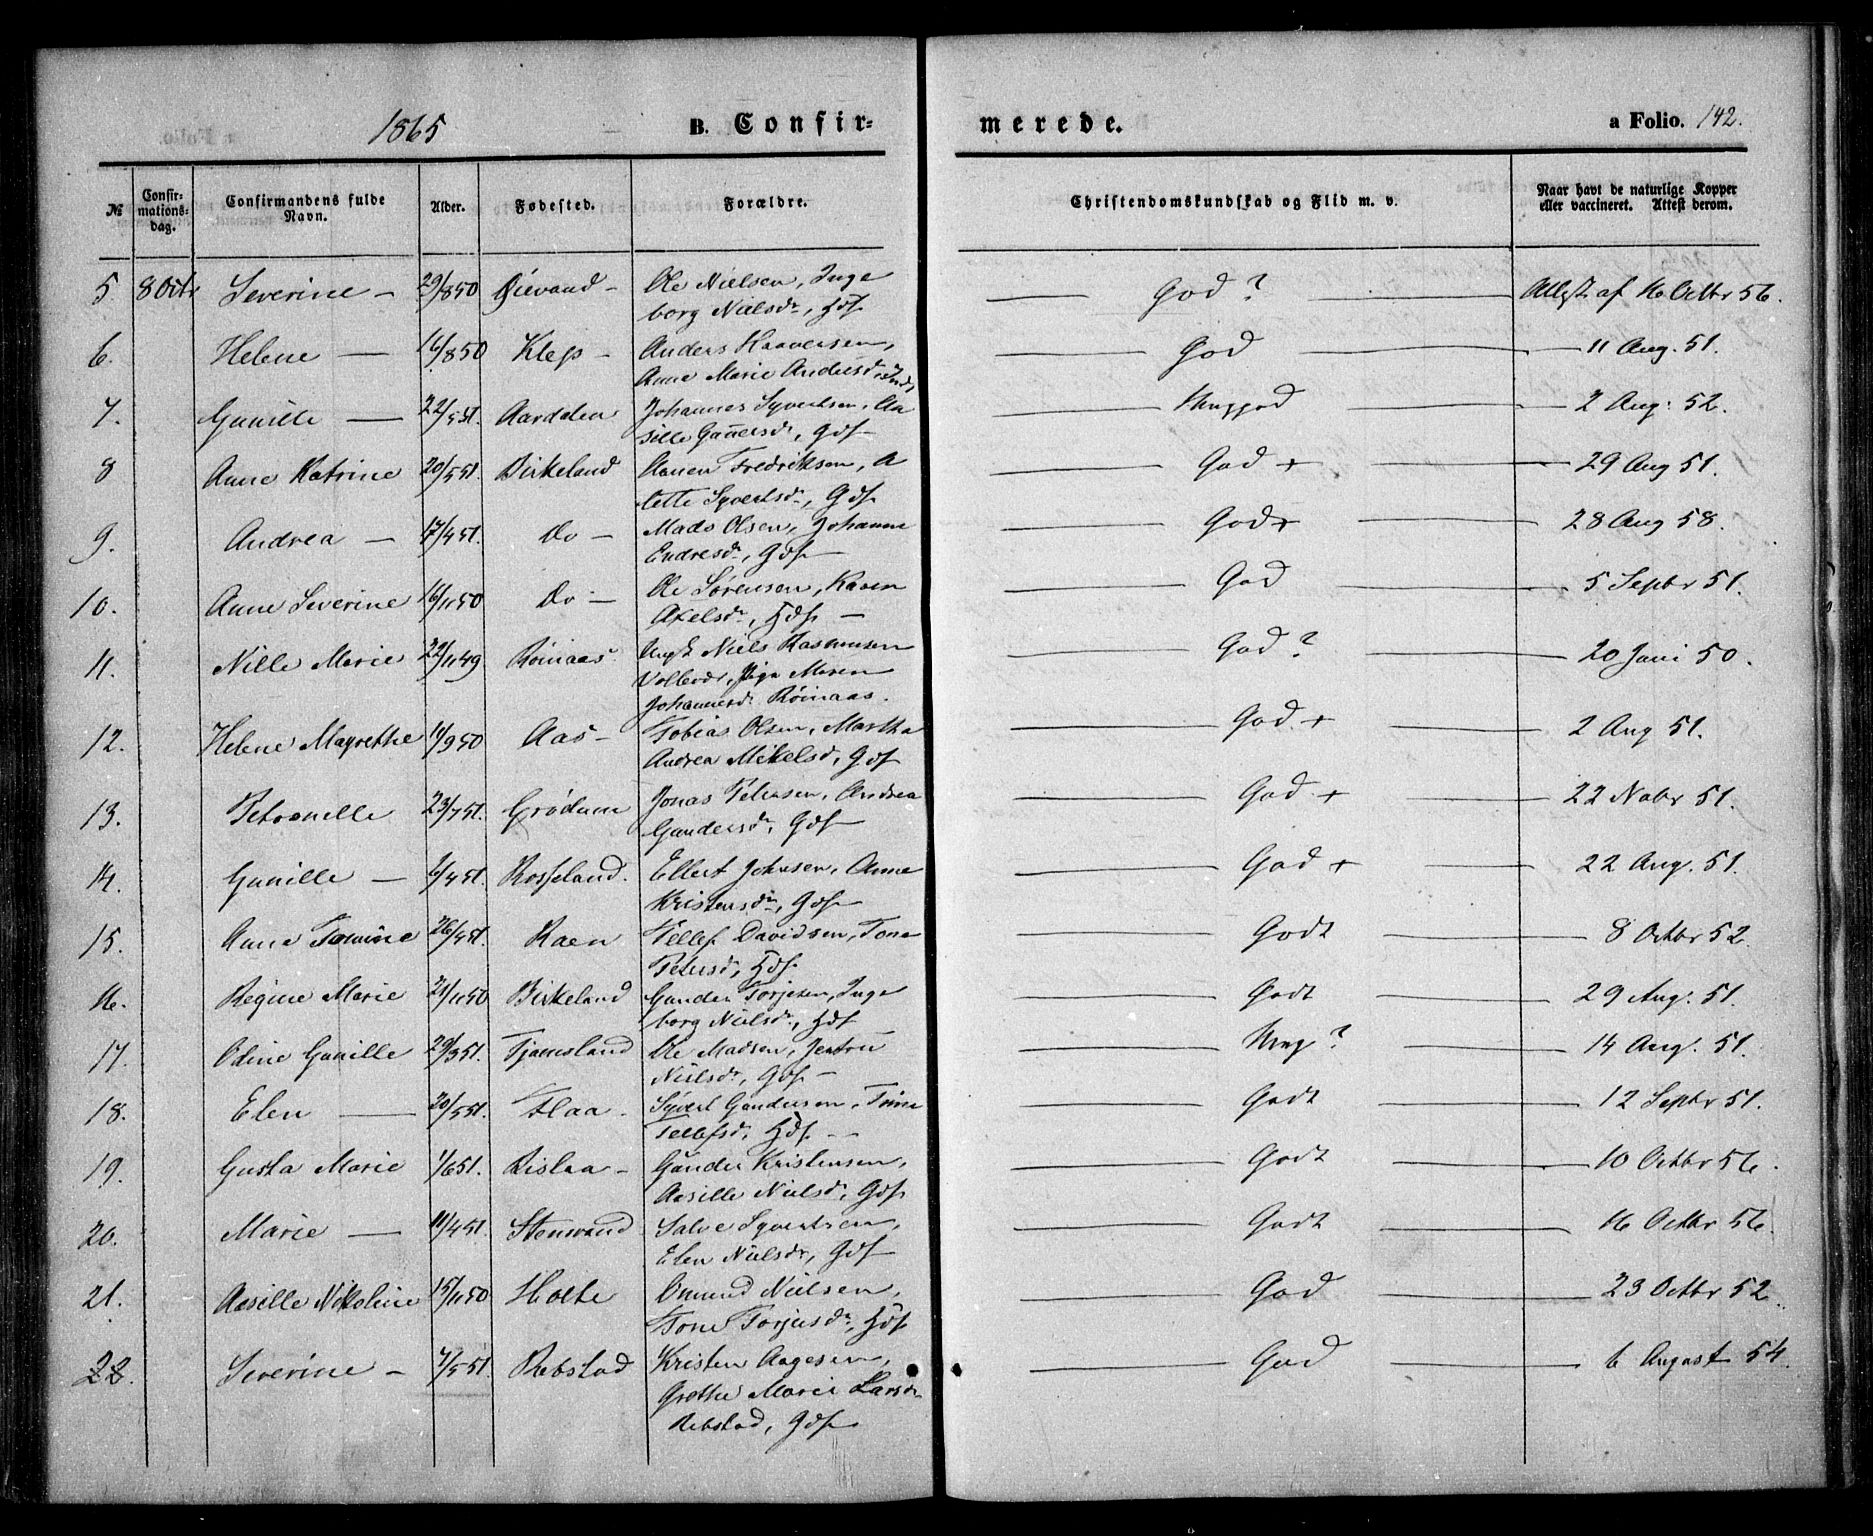 1865 B. Confir= merede. a Folio. 142.
№ Confir=mations=dag. Confirmandens fulde Navn. Alder. Fødested. Forældre. Christendomskundskab og Flid m. v. Naar havt de naturlige Kopper eller vaccineret. Attest derom.
5. 8 Octr Severine — 29/8 50 Ole Nielsen, Inge God ? Attest af 16 Octbr 56.
borg Nielsdr, Hdf
6. Helene — 16/8 50 Klep — Anders Haaversen, God 11 Aug. 51.
Anne Marie Andersd,
7. Gunille — 22/5 51. Aardalen Johannes Syvertsen, Aa Megjod 2 Aug: 52.
sille Gunnersdr, Gdf
8 Anne Katrine 20/5 51. Birkeland Aanen Fredriksen, A God + 29 Aug 51.
lette Syvertsdr, Gdf
9. Andrea — 17/4 51. Do — Mads Olsen, Johanne God + 28 Aug 58.
Endresdr, Gdf —
10. Anne Severine 16/11 50 Do — Ole Sørensen, Karen God 5 Septbr 51.
Axelsdr, Hdf —
11. Nille Marie 22/11 49 Røinaas Ungk Niels Rasmussen God ? 20 Juni 50.
Pige Maren
Johannesdr Røinaas.
12. Helene Magrethe 11/9 50 Aas — Tobias Olsen, Martha God + 2 Aug 51.
Andrea Mikelsd, Gdf
13. Petronelle 23/7 51. Grødum Jonas Petersen, Andrea God + 22 Nobr 51.
Gundersdr, Gdf
14. Gunille — 6/4 51. Rosseland. Ellert Johnsen, Anne God + 22 Aug. 51.
Kristensdr, Gdf
15. Anne Tomine 26/4 51. Raen Tellef Davidsen, Tone Godt 8 Octbr 52
Petersd, Hdf
16. Regine Marie 21/11 50 Birkeland Gunder Torjesen, Inge Godt 29 Aug. 51.
borg Nielsdr, Hdf
17. Odine Gunille 29/3 51. Tjamsland Ole Madsen, Jertru Meg ? 14 Aug. 51.
Nielsdr, Gdf —
18. Elen — 20/5 51. Flaa — Syvert Gundersen, Tone Godt 12 Septbr 51.
Tellefsd, Hdf —
19. Gusta Marie 1/6 51. Rislaa — Gunder Kristensen, Godt 10 Octbr 56.
Aasille Nielsd, Gdf
20. Marie — 11/4 51. Stenvand Salve Syvertsen, Godt 16 Octbr 56.
Elen Nielsdr, Gdf
21. Aasille Nikoline 15/11 50 Holte Omund Nielsen, God 23 Octbr 52.
Tone Torjusdr, Hdf
22. Severine — 7/5 51. Rebstad Kristen Aagesen, God 6 August 54.
Grethe Marie Larsdr
Rebstad, Gdf